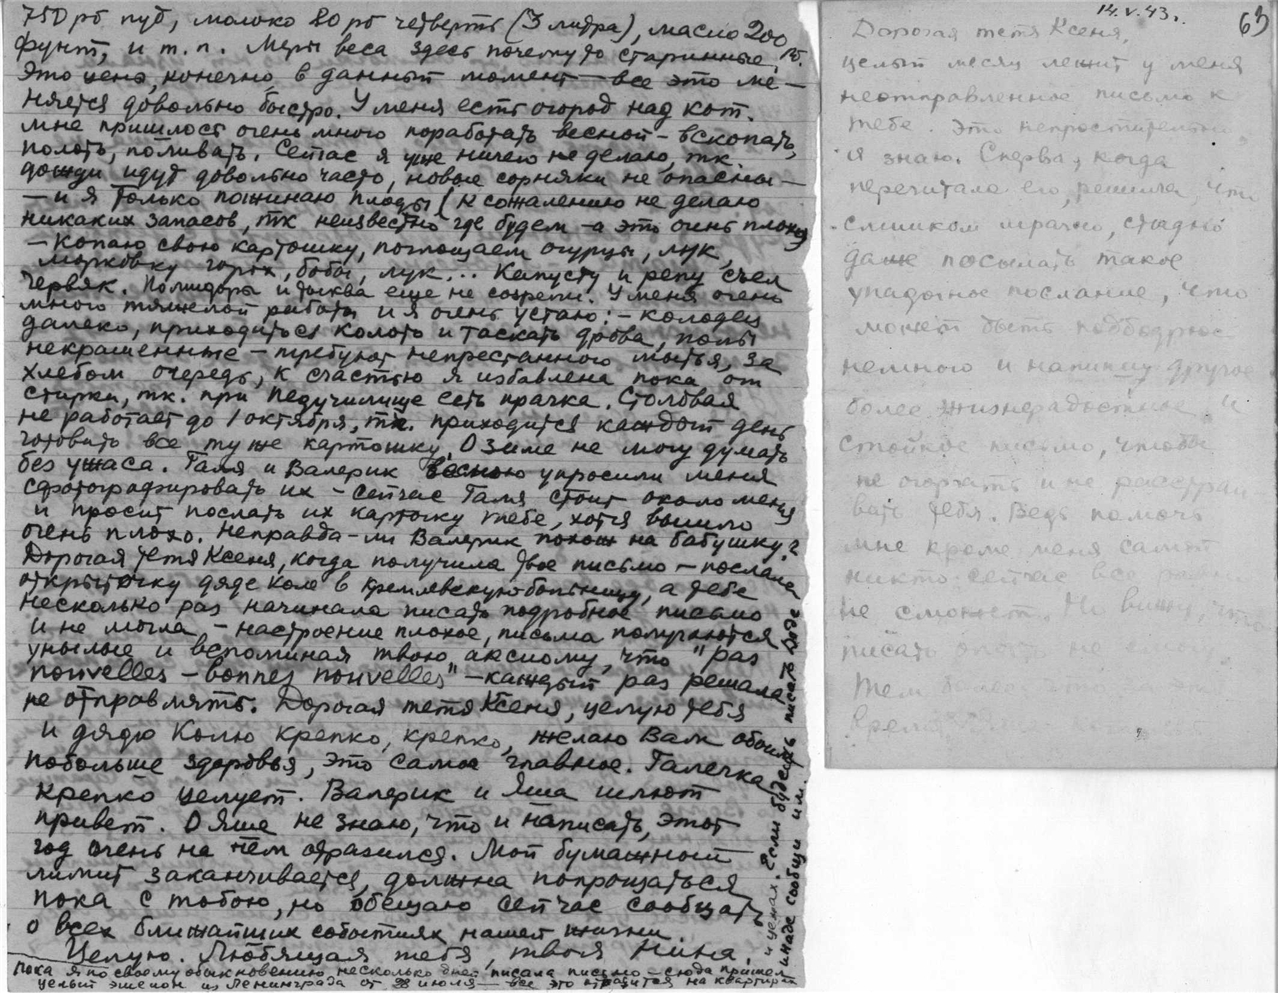 750 рб пуд, молоко 80 рб четверть (3 литра), масло 200 рб.
фунт, и т.п. Меры веса здесь почему-то старинные.
Это цены, конечно, в данный момент — все это ме-
няется довольно быстро. У меня есть огород над кот.
мне пришлось очень много поработать весной — вскопать,
полоть, поливать. Сейчас я уже ничего не делаю, тк.
дожди идут довольно часто, новые сорняки не опасны —
— и я только пожинаю плоды (к сожалению не делаю
никаких запасов, тк неизвестно где будем — а это очень плохо)
— копаю свою картошку, поглощаем огурцы, лук,
морковку, горох, бобы, лук... Капусту и репу съел
червяк. Помидоры и тыква еще не созрели. У меня очень
много тяжелой работы и я очень устаю: — колодец
далеко, приходиться колоть и таскать дрова, полы
некрашенные — требуют непрестанного мытья, за
хлебом очередь, к счастью я избавлена пока от
стирки, тк. при педучилище есть прачка. Столовая
не работает до 1 октября, тк. приходится каждый день
готовить все ту же картошку. О зиме не могу думать
без ужаса. Галя и Валерик весною упросили меня
сфотографировать их — сейчас Галя стоит около меня
и просит послать их карточку тебе, хотя вышло
очень плохо. Неправда-ли Валерик похож на бабушку?
Дорогая тетя Ксеня, когда получила твое письмо — послала
открыточку дяде Коле в Кремлевскую больницу, а тебе
несколько раз начинала писать подробное письмо
и не могла — настроение плохое, письма получаются
унылые и вспоминая твою аксиому, что "pas
nouvelles — bonnes nouvelles" — каждый раз решала
не отправлять. Дорогая тетя Ксеня, целую тебя
и дядю Колю крепко, крепко, желаю Вам обоим
побольше здоровья, это самое главное. Галечка
крепко целует. Валерик и Яша шлют
привет. О Яше не знаю, что и написать, этот
год очень на нем отразился. Мой бумажный
лимит заканчивается, должна попрощаться
пока с тобою, но обещаю сейчас сообщать
о всех ближайших событиях нашей жизни
Целую. Любящая тебя, твоя Нина.
Пока я по своему обыкновению несколько дней писала письмо — сюда пришел
целый эшелон из Ленинграда от 28 июля — все это отразится на квартирах
и ценах. Если будешь писать
и наде сообщи им.
14.V.43г.
63
Дорогая тетя Ксеня,
целый месяц лежит у меня
неотправленное письмо к
тебе. Это непростительно,
я знаю. Сперва, когда
перечитала его, решила, что
слишком мрачно, стыдно
даже посылать такое
упадочное послание, что
может быть подбодрюсь
немного и напишу другое
более жизнерадостное и
стойкое письмо, чтобы
не огорчать и не расстраи
вать тебя. Ведь помочь
мне кроме меня самой
никто сейчас все равно
не сможет. Но вижу, что
писать опять не смогу.
Тем более, что за это
время